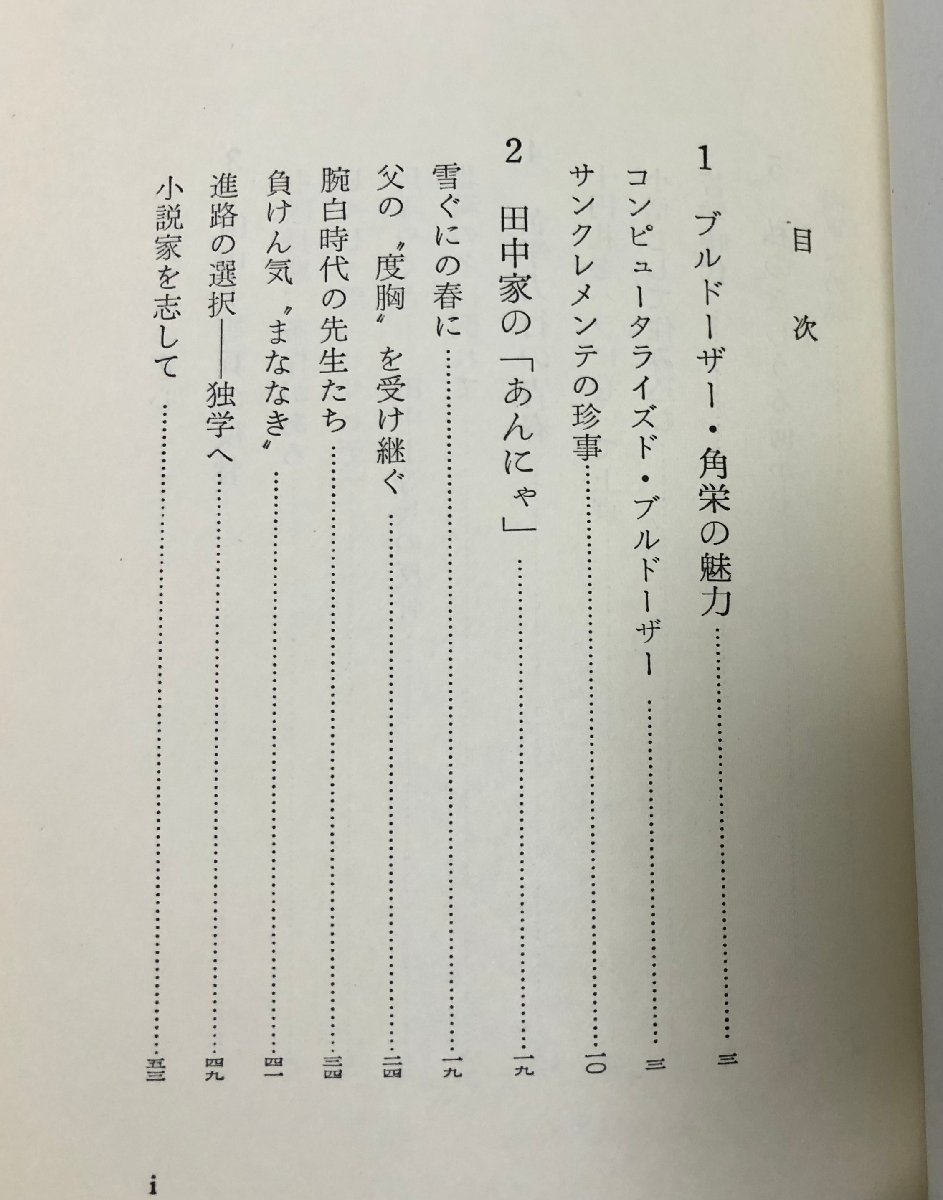 目次
1 ブルドーザー・角栄の魅力……三
コンピュータライズド・ブルドーザー……三
サンクレメンテの珍事……一〇
2 田中家の「あんにゃ」……一九
雪ぐにの春に……一九
父の〝度胸〟を受け継ぐ……二四
腕白時代の先生たち……三四
負けん気〝まななき〟……四一
進路の選択——独学へ……四九
小説家を志して……五三
i